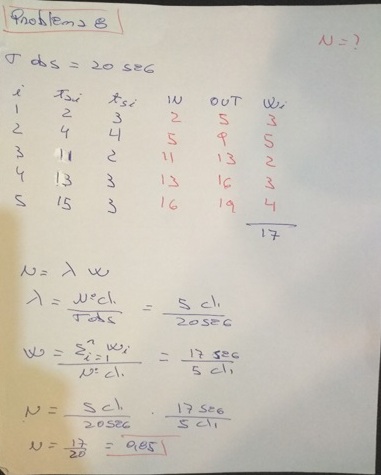 Problema 8
N = ?
T obs = 20 seg
i tai tsi IN OUT wi
1 2 3 2 5 3
2 4 4 5 9 5
3 11 2 11 13 2
4 13 3 13 16 3
5 15 3 16 19 4
17
N = λ W
λ = Nº cli / T obs = 5 cli / 20 seg
W = Σⁿi=1 wi / Nº cli = 17 seg / 5 cli
N = 5 cli / 20 seg · 17 seg / 5 cli
N = 17/20 = 0,85